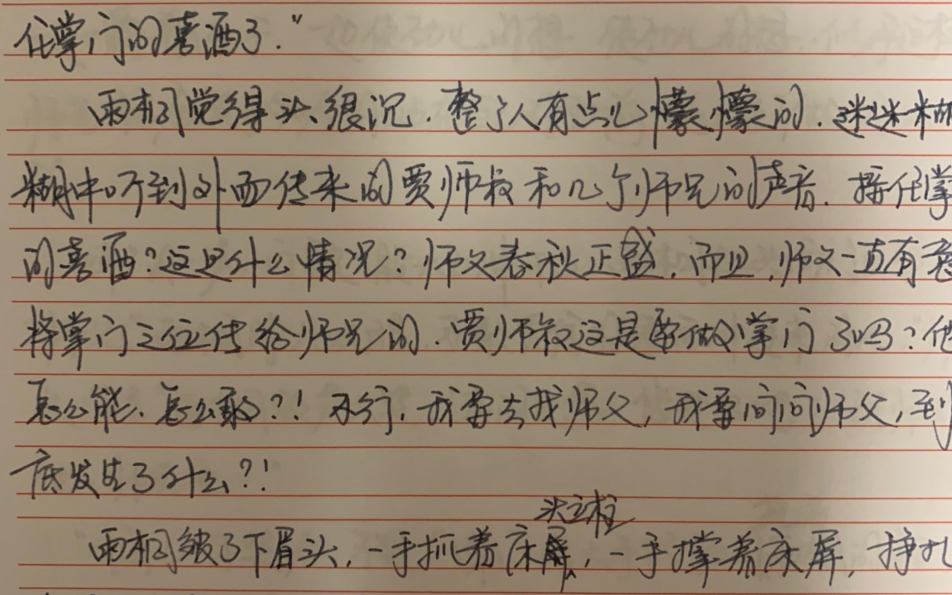 任掌门的喜酒了."
雨桐觉得头很沉.整个人有点儿懵懵的.迷迷糊
糊中听到外面传来的贾师叔和几个师兄的声音.接任掌
的喜酒?这是什么情况?师父春秋正盛.而且,师父一直有意
将掌门之位传给师兄的.贾师叔这是要做掌门了吗?他
怎么能.怎么敢?!不行,我要去找师父,我要问问师父,到
底发生了什么?!
头立柱
雨桐皱了下眉头,一手抓着床屏,一手撑着床屏,挣扎